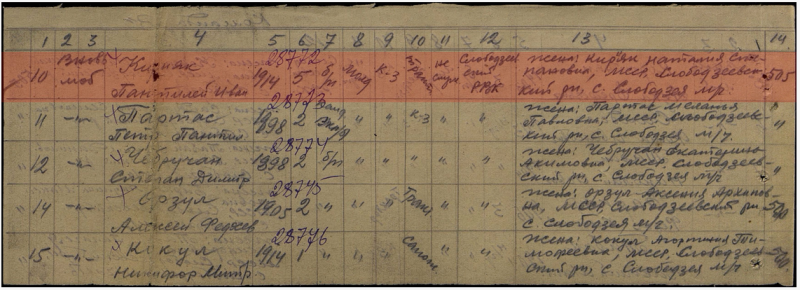 1 2 3 4 5 6 7 8 9 10 11 12 13 14
28772
10 Вновь моб Кирияк Пантилей Иван 1914 5 б/п Молд к-з не служ Слободзейский РВК жена: Кирьяк Наталия Степановна, МССР, Слободзеевский рн, с. Слободзея м/г. 505
28773
11 -"- Партас Петр Пантил 1898 2 " " к-з " " жена: Партас Меланья Павловна, МССР, Слободзеевский рн, с. Слободзея м/г. "
28774
12 -"- Чебручан Степан Димитр 1898 2 б/п " " " " " жена: Чебручан Екатерина Акимовна, МССР, Слободзеевский рн, с. Слободзея м/г "
28775
14 -"- Орзул Алексей Федеев 1905 2 " " " " " жена: Орзул Аксения Архиповна, МССР Слободзеевский рн с. Слободзея м/г.
28776
15 -"- Кокул Никифор Митр 1914 1 " " " Сапож " " жена: Кокул Тимофеевна, МССР, Слободзеевский рн, с. Слободзея м/г